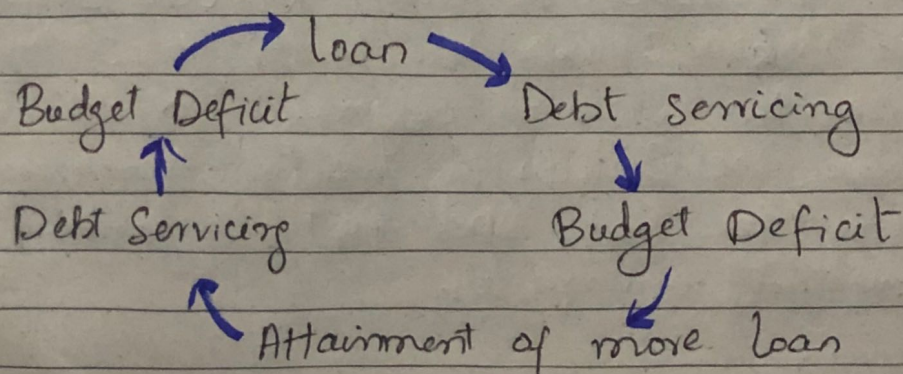 Loan
Budget Deficit
Debt Servicing
Debt Servicing
Budget Deficit
Attainment of more loan